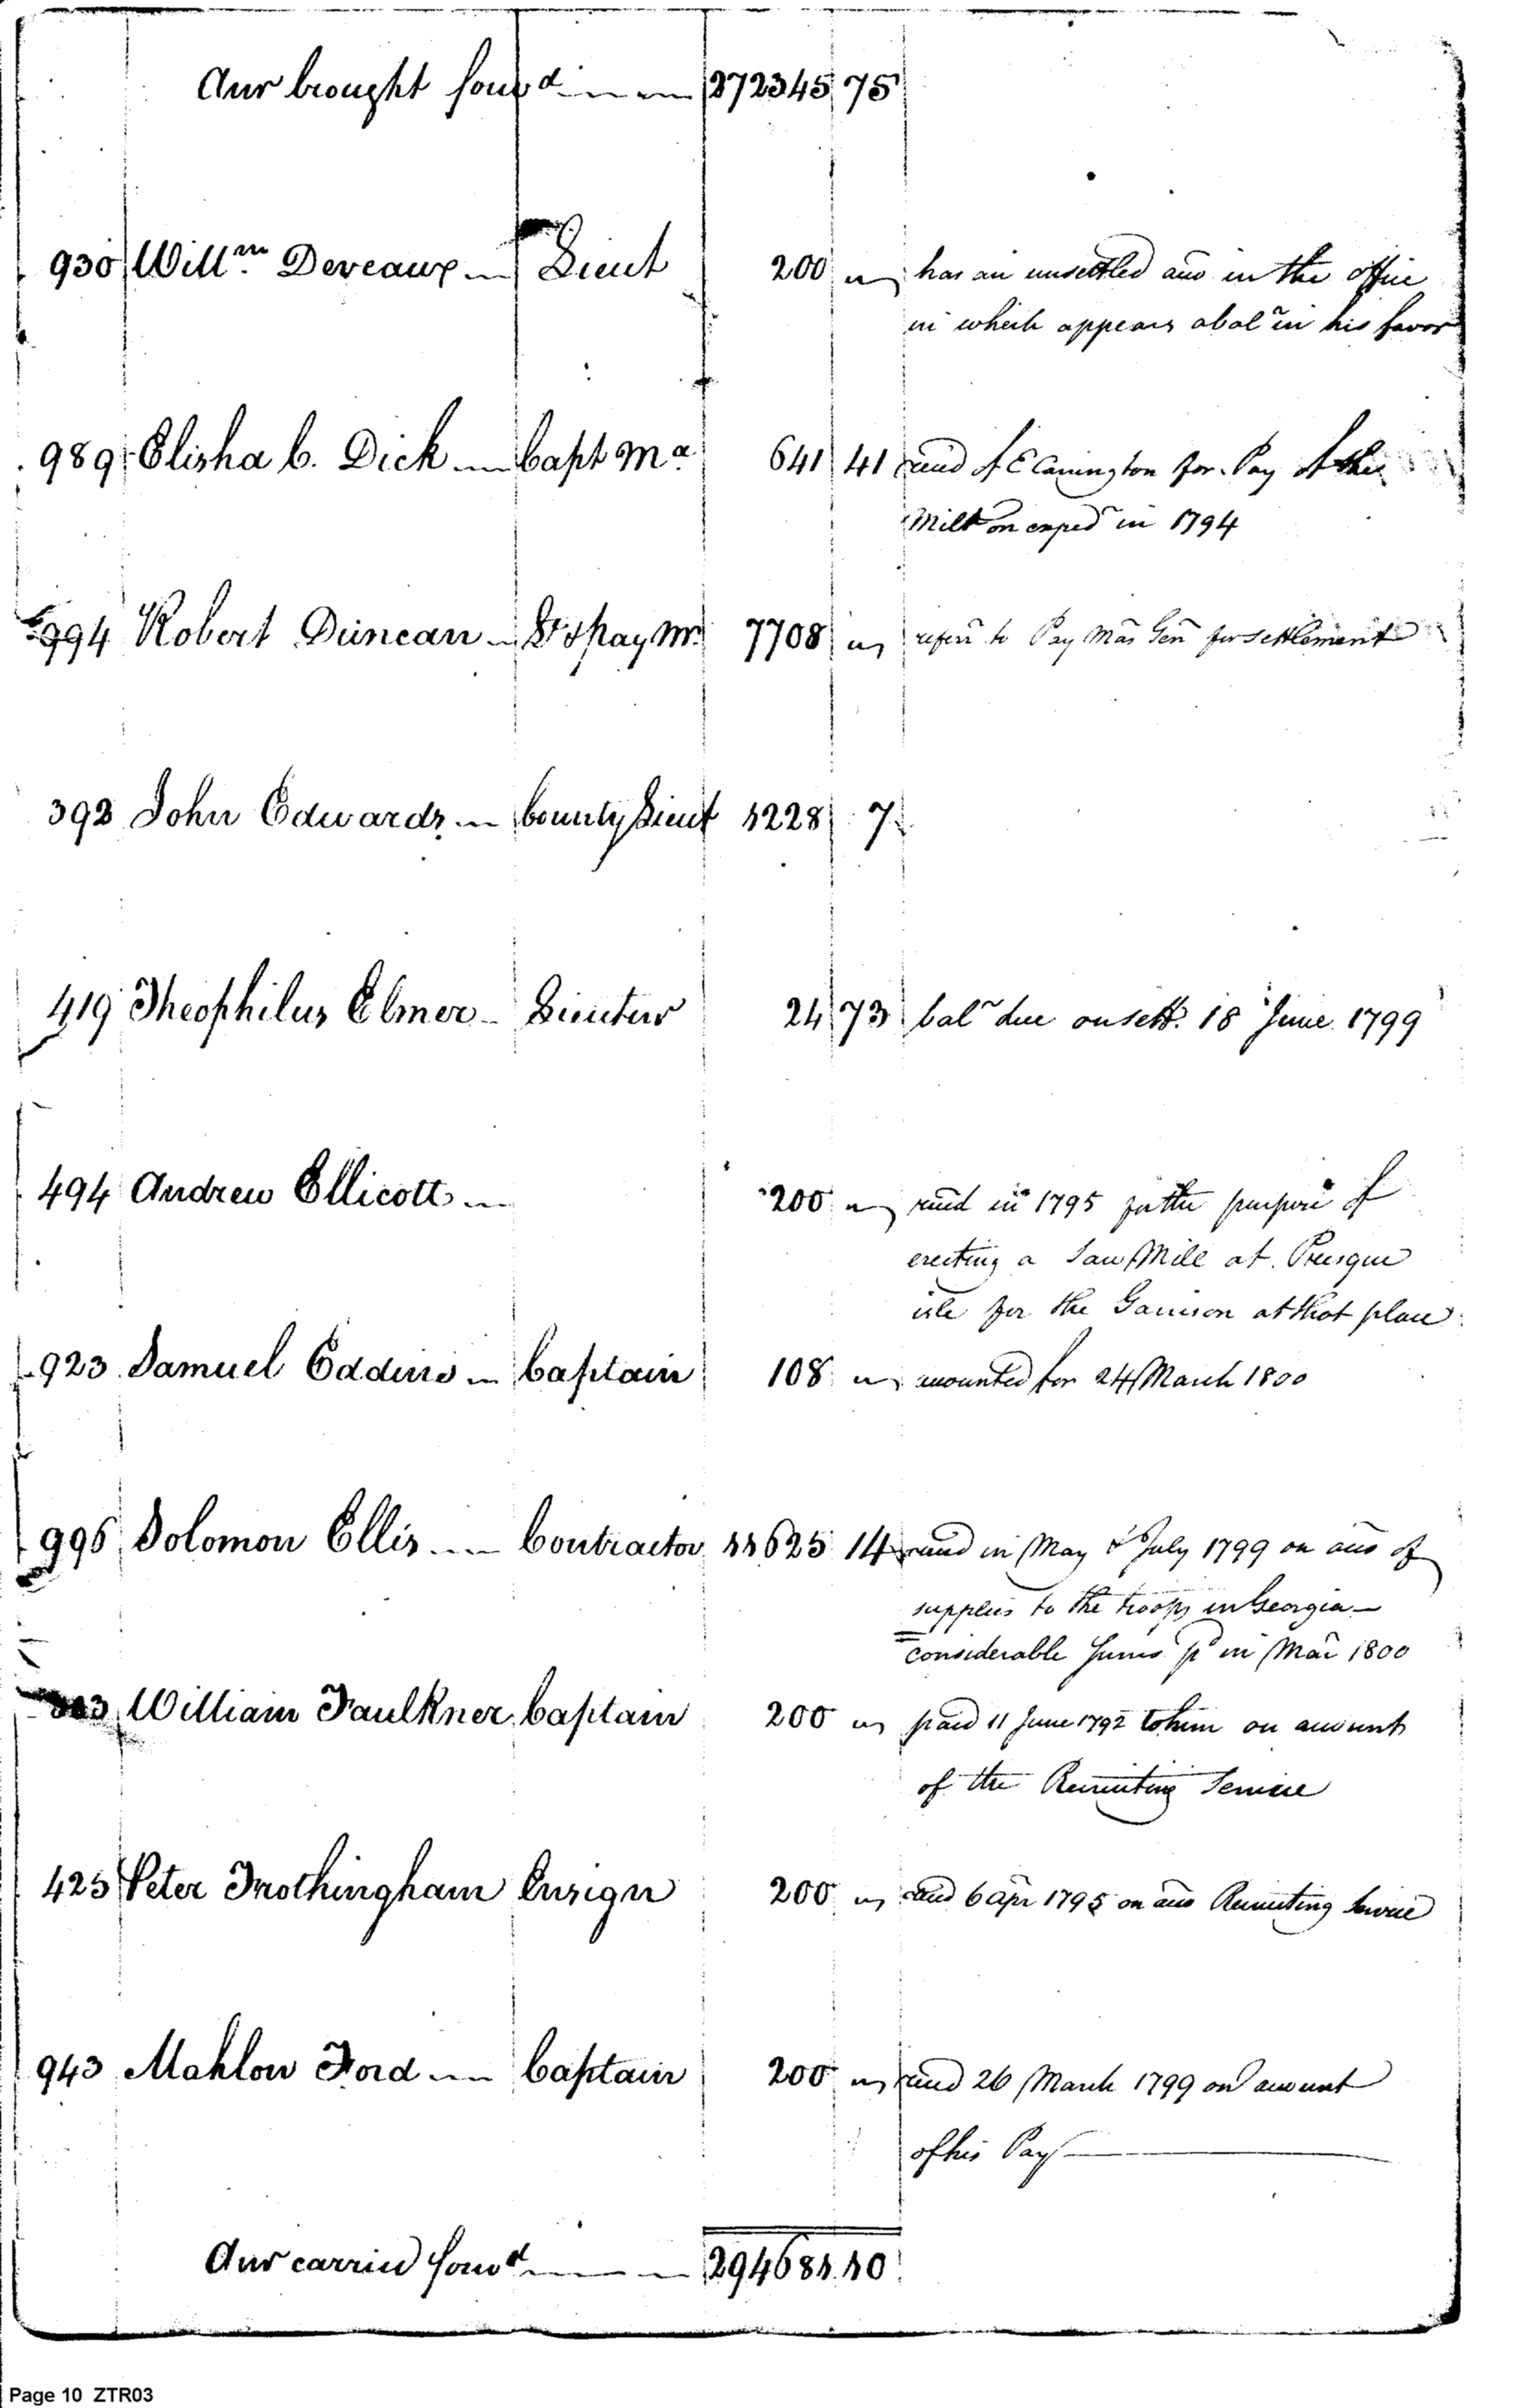 Amt brought forwd 272345 75
930 Willm Deveaux Lieut 200 has an unsettled acco in the office
in which appears a bal in his favor
989 Elisha C. Dick Capt Ma 641 41 recd of E Carrington for Pay of the
Milt on exped in 1794
994 Robert Duncan Dy pay Mr 7708 referr to Pay Mas Gen for settlement
392 John Edwards County Lieut 1228 7
419 Theophilus Elmer Lieuten 24 73 bal due on sett. 18 June 1799
494 Andrew Ellicott 200 recd in 1795 for the purpose of
erecting a Saw Mill at Presque
isle for the Garrison at that place
923 Samuel Eddins Captain 108 accounted for 24 March 1800
996 Solomon Ellis Contractor 11625 14 recd in May & July 1799 on acco of
supplies to the troops in Georgia
considerable sums pd in Mar 1800
William Faulkner Captain 200 paid 11 June 1792 to him on account
of the Recruiting Service
425 Peter Frothingham Ensign 200 recd 6 Apr 1795 on acco Recruiting Service
943 Mahlon Ford Captain 200 recd 26 March 1799 on account
of his Pay
Amt carried forwd 294681.10
Page 10 ZTR03